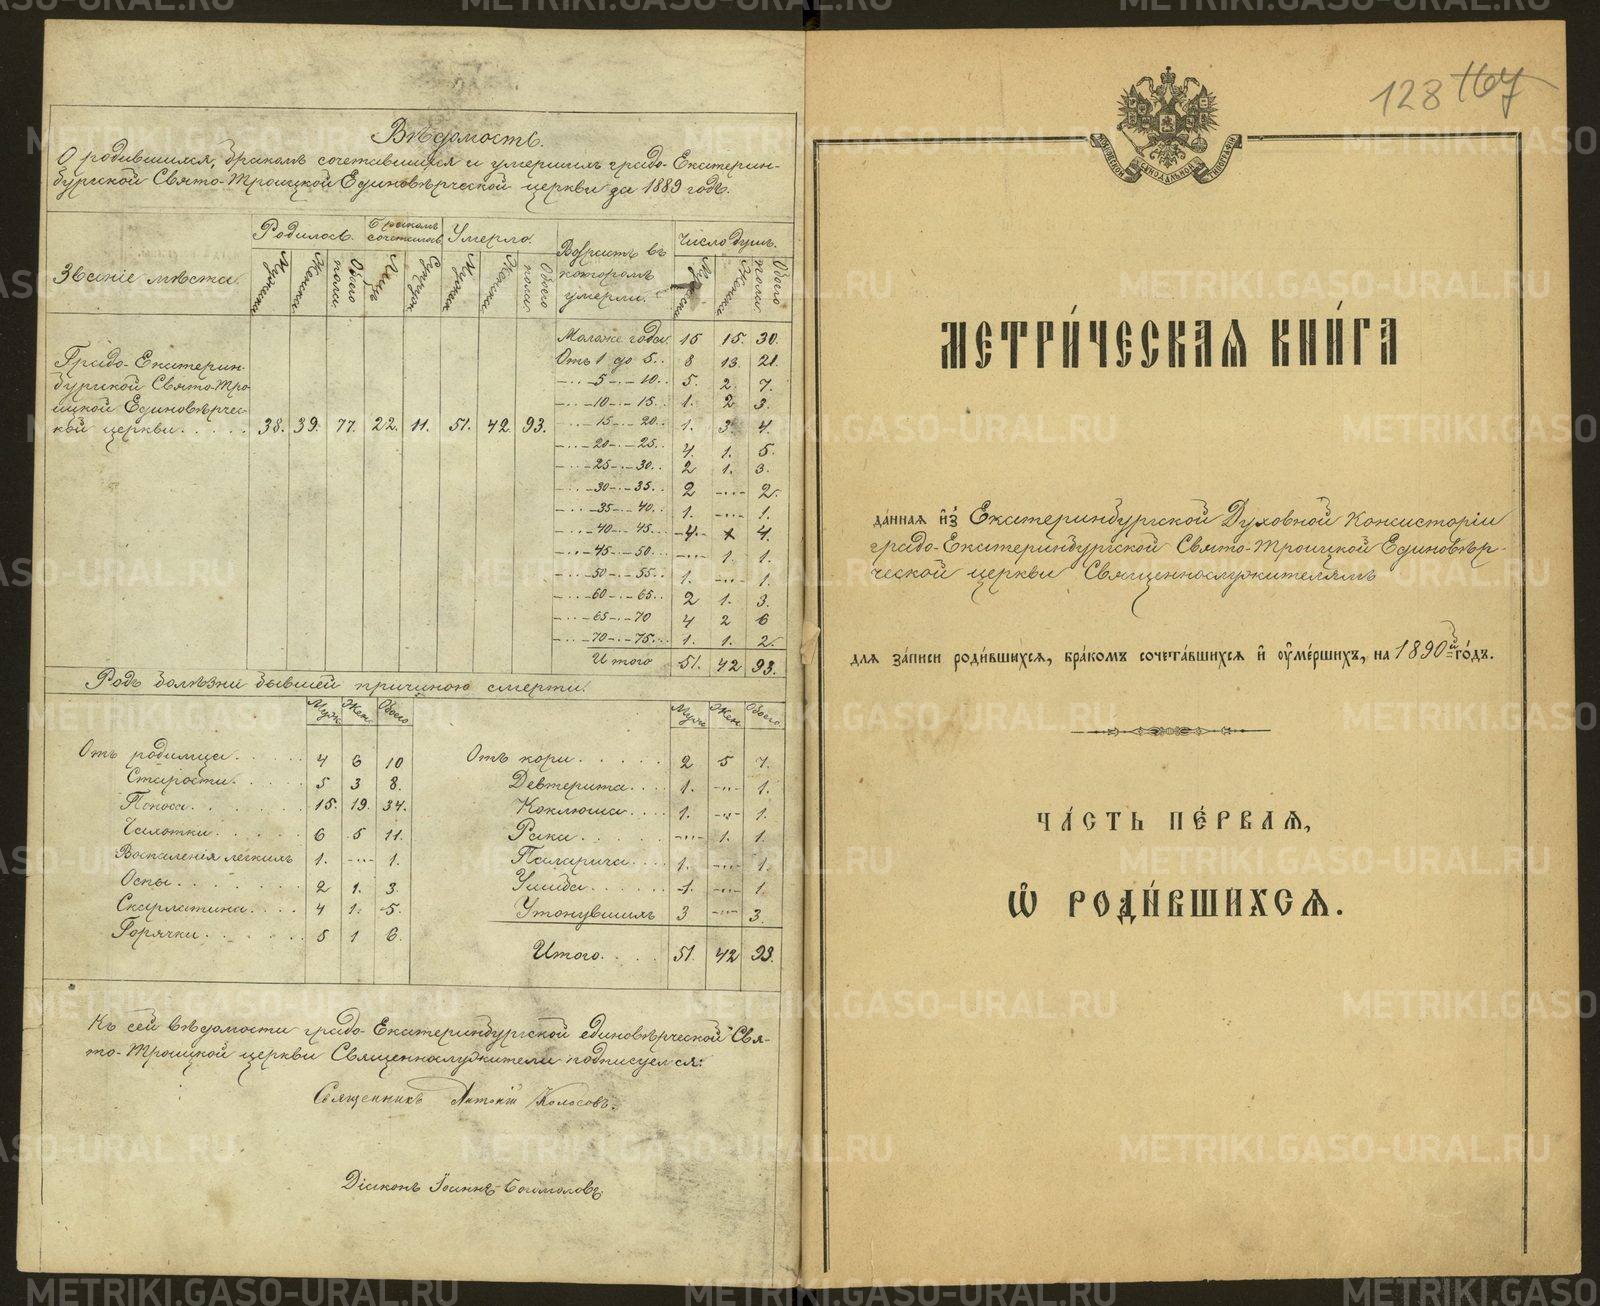 Вѣдомость.
О родившихся, бракомъ сочетавшихся и умершихъ градо-Екатерин-
бургской Свято-Троицкой Единовѣрческой церкви за 1889 годъ.
Званіе мѣста.
Родилось.
Бракомъ сочеталось
Умерло.
Возрастъ въ которомъ умерли.
Число душъ.
Мужска Женска Обоего пола Лицъ Супруж Мужска Женска Обоего пола Мужска Женска Обоего пола
Градо-Екатерин-
бургской Свято-Тро-
ицкой Единовѣрчес-
кой церкви . . . . . 38. 39. 77. 22. 11. 51. 42. 93.
Моложе года. 15 15. 30.
Отъ 1 до 5. . 8 13. 21.
— 5 — 10. . 5. 2. 7.
— 10 — 15. . 1. 2 3.
— 15 — 20. . 1. 3. 4.
— 20 — 25. . 4. 1. 5.
— 25 — 30. . 2 1. 3.
— 30 — 35. . 2 — 2.
— 35 — 40. . 1. — 1.
— 40 — 45. . 4. 4.
— 45 — 50. . — 1. 1.
— 50 — 55. . 1. — 1.
— 60 — 65. . 2 1. 3.
— 65 — 70 4 2 6
— 70 — 75. . 1. 1. 2.
Итого 51. 42 93.
Родъ болѣзни бывшей причиною смерти.
Муж. Жен. Обоего
Муж. Жен. Обоего.
Отъ родимца . . . . . 4 6 10
Старости . . . . 5 3 8.
Поноса . . . . . . 15. 19. 34.
Чахотки . . . . . 6 5 11.
Воспаленія легкихъ 1. — 1.
Оспы . . . . . . . 2 1. 3.
Скарлатина . . . . 4 1. 5.
Горячки . . . . . . 5 1 6.
Отъ кори . . . . . . 2 5 7.
Девтерита . . . . 1. — 1.
Коклюша . . . . 1. — 1.
Рака . . . . . . — 1. 1.
1. — 1.
Ушиба . . . . . . 1. — 1.
Утонувшихъ 3 — 3.
Итого . . . . 51. 42 93.
Къ сей вѣдомости градо-Екатеринбургской единовѣрческой Свя-
то-Троицкой церкви Священнослужители подписуемся:
Священникъ Антоній Колосовъ.
Діаконъ Іоаннъ Богомоловъ
128 167
МОСКОВСКОЙ СѴНОДАЛЬНОЙ ТИПОГРАФІИ
МЕТРИ́ЧЕСКАЯ КНИ́ГА
да́нная и҆з̾ Екатеринбургской Духовной Консисторіи
градо-Екатеринбургской Свято-Троицкой Единовѣр-
ческой церкви Священнослужителямъ
для за́писи роди́вшихся, бра́комъ сочета́вшихся и҆ ᲂу҆ме́ршихъ, на 1890й го́дъ.
ЧА́СТЬ ПЕ́РВАЯ,
Ѡ҆ РОДИ́ВШИХСЯ.
METRIKI.GASO-URAL.RU